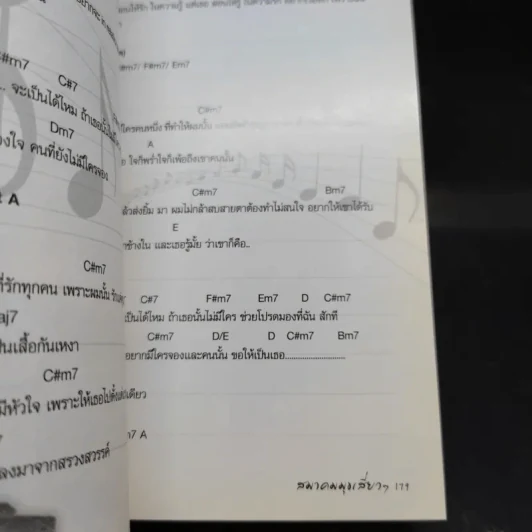 C#m7
C#7
.. จะเป็นได้ไหม ถ้าเธอนั้น
Dm7
องใจ คนที่ยังไม่มีใครจอง
A
C#m7
ที่รักทุกคน เพราะผมนั้น
aj7
ป็นเสื้อกันเหงา
C#m7
มีหัวใจ เพราะให้เธอไปตั้งแต่เดียว
7
ลงมาจากสรวงสวรรค์
#m7/ F#m7/ Em7
C#m7
มีใครคนหนึ่ง ที่ทำให้ผมนั้น
A
ย ใจก็พร่ำใจก็เพ้อถึงเขาคนนั้น
C#m7 Bm7
ล้วส่งยิ้ม มา ผมไม่กล้าสบสายตาต้องทำไม่สนใจ อยากให้เขาได้รับ
E
าข้างใน และเธอรู้มั้ย ว่าเขาก็คือ..
C#7 F#m7 Em7 D C#m7
เป็นได้ไหม ถ้าเธอนั้นไม่มีใคร ช่วยโปรดมองที่ฉัน สักที
C#m7 D/E D C#m7 Bm7
อยากมีใครจองและคนนั้น ขอให้เป็นเธอ............................
m7 A
สมาคมหมุ่เสี่ยวๆ 179